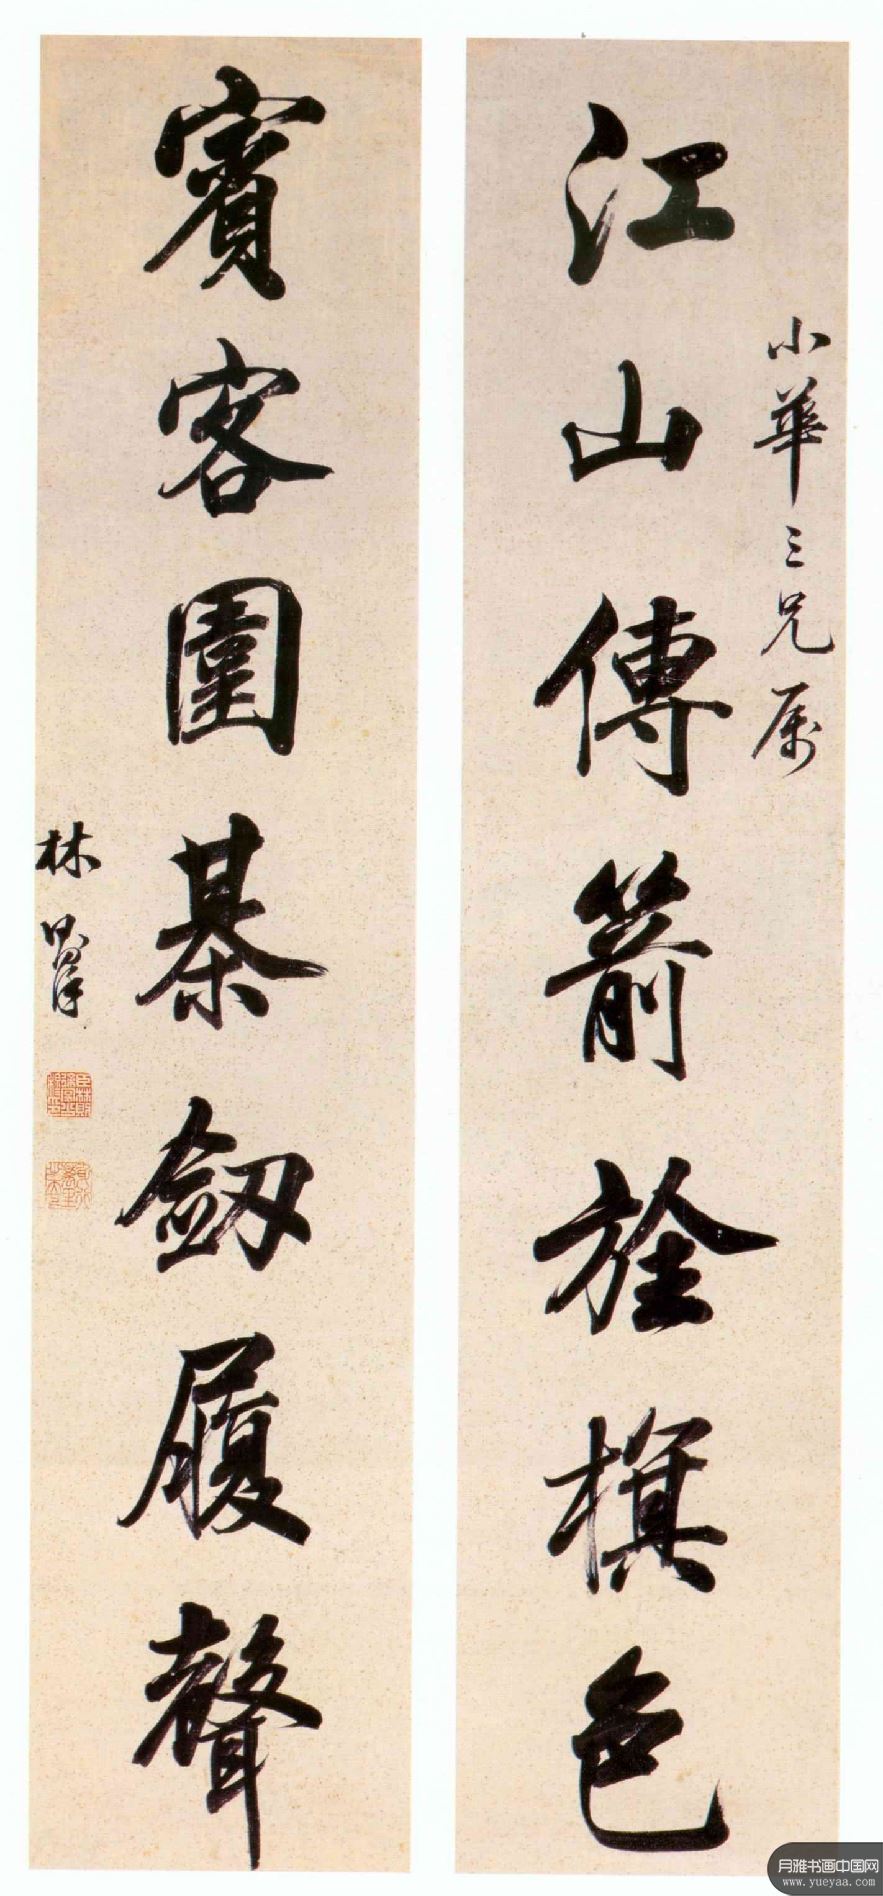 小華三兄属
江山傳箭旌旗色
賓客圍棊劒履聲
林則徐
月雅书画中国网
www.yueyaa.com